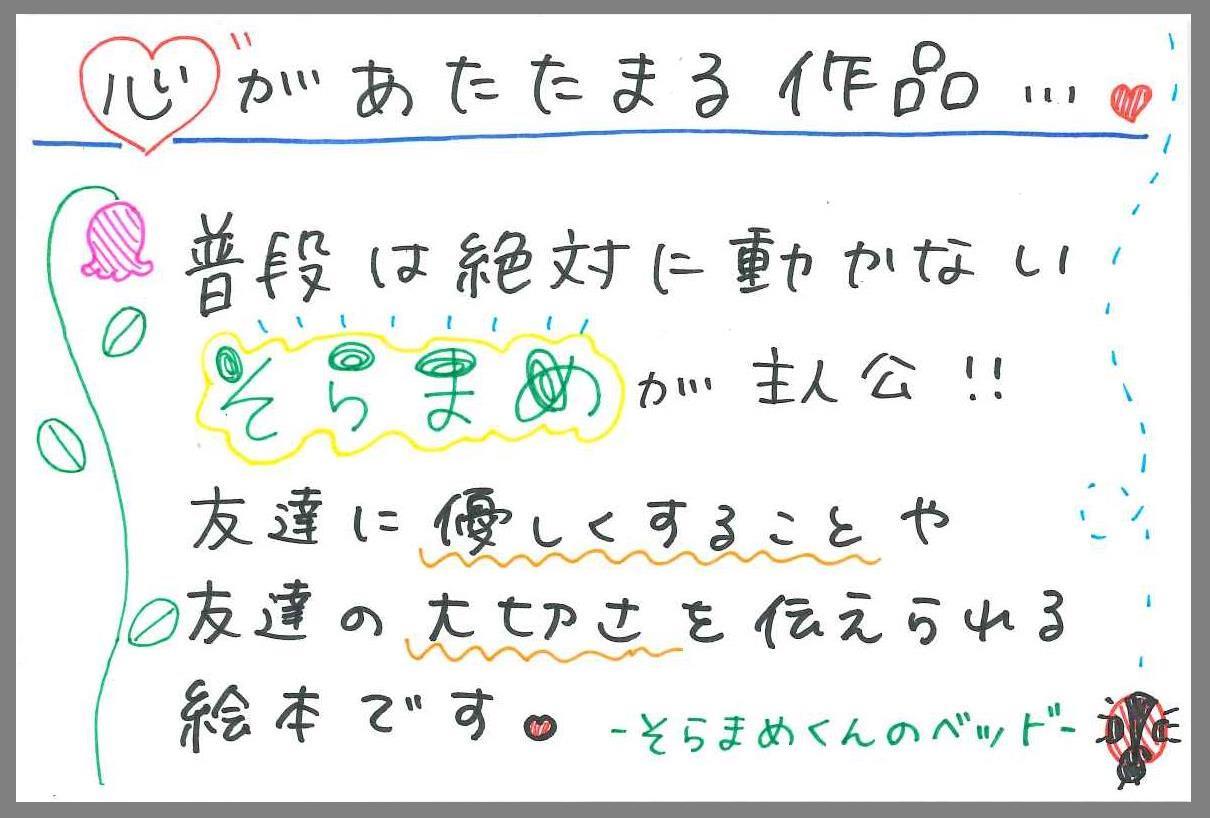 心があたたまる作品…
普段は絶対に動かない
そらまめが主人公!!
友達に優しくすることや
友達の大切さを伝えられる
絵本です
-そらまめくんのベッド-